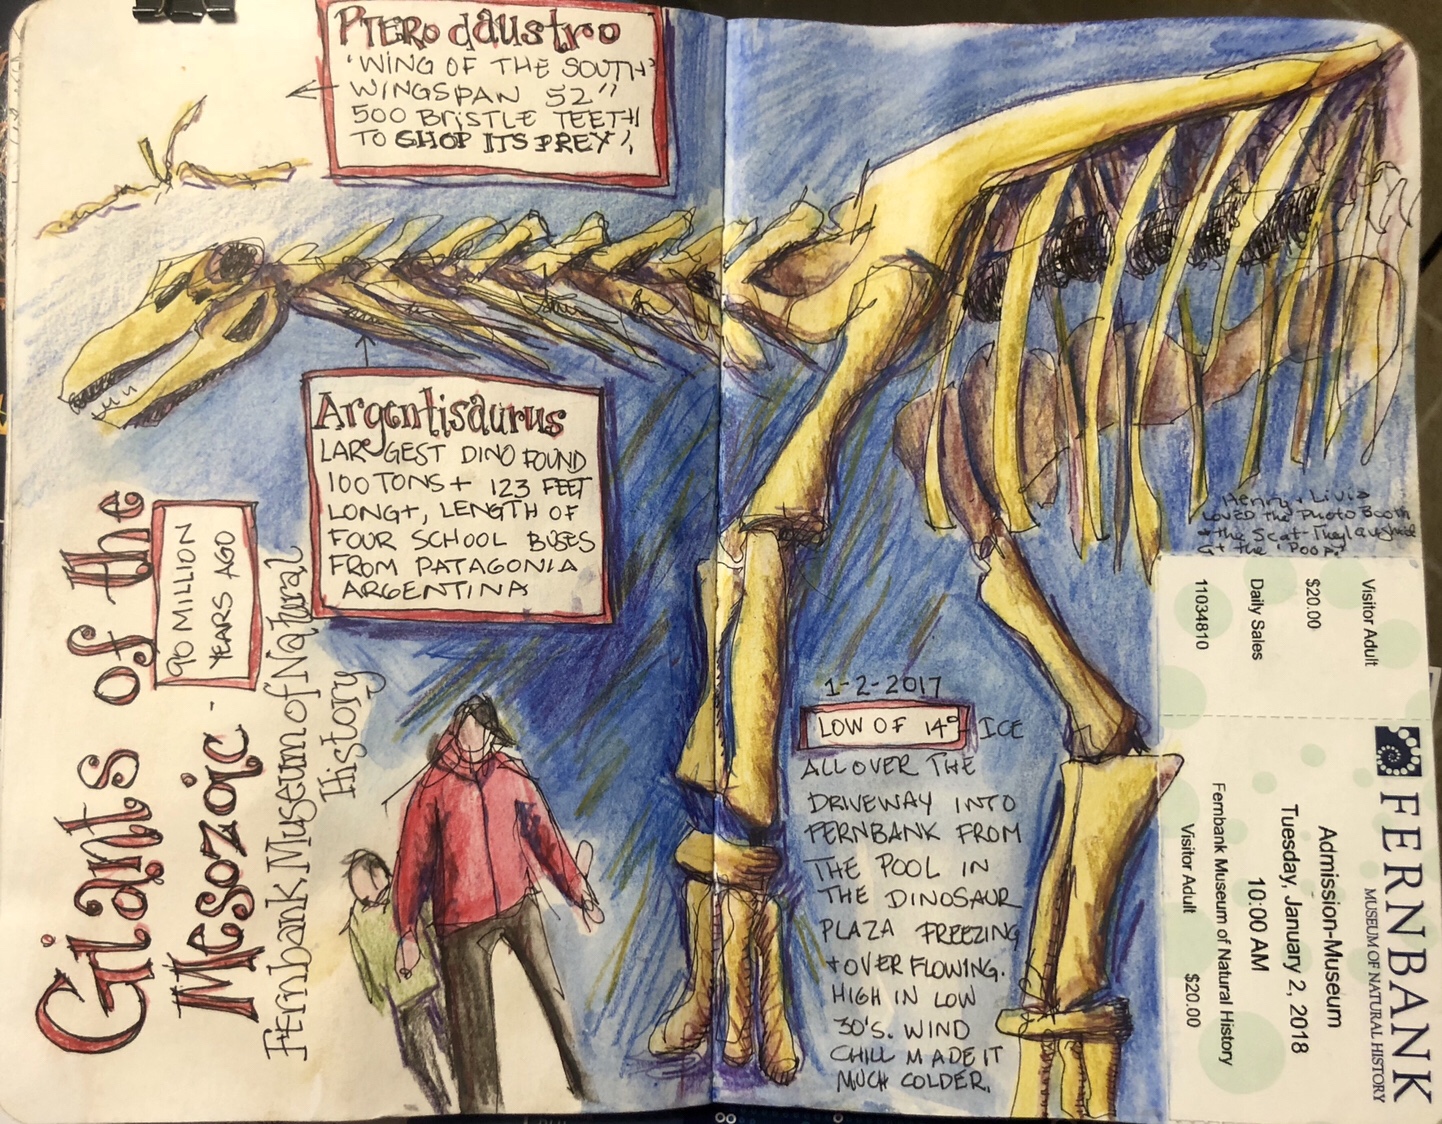 PTERodaustro
'WING OF THE SOUTH'
WINGSPAN 52"
500 BRISTLE TEETH
TO CHOP ITS PREY!
Argentisaurus
LARGEST DINO FOUND
100 TONS + 123 FEET
LONG+, LENGTH OF
FOUR SCHOOL BUSES
FROM PATAGONIA
ARGENTINA
Giants of the
Mesozoic -
90 MILLION
YEARS AGO
Fernbank Museum of Natural
History
1-2-2017
LOW OF 14° ICE
ALL OVER THE
DRIVEWAY INTO
FERNBANK FROM
THE POOL IN
THE DINOSAUR
PLAZA FREEZING
+ OVER FLOWING.
HIGH IN LOW
30'S. WIND
CHILL MADE IT
MUCH COLDER.
Henry + Livia
LOVED the Photo Booth
+ the Scat They laughed
at the "Poop"
Visitor Adult
$20.00
Daily Sales
11034810
FERNBANK
MUSEUM OF NATURAL HISTORY
Admission-Museum
Tuesday, January 2, 2018
10:00 AM
Fernbank Museum of Natural History
Visitor Adult $20.00